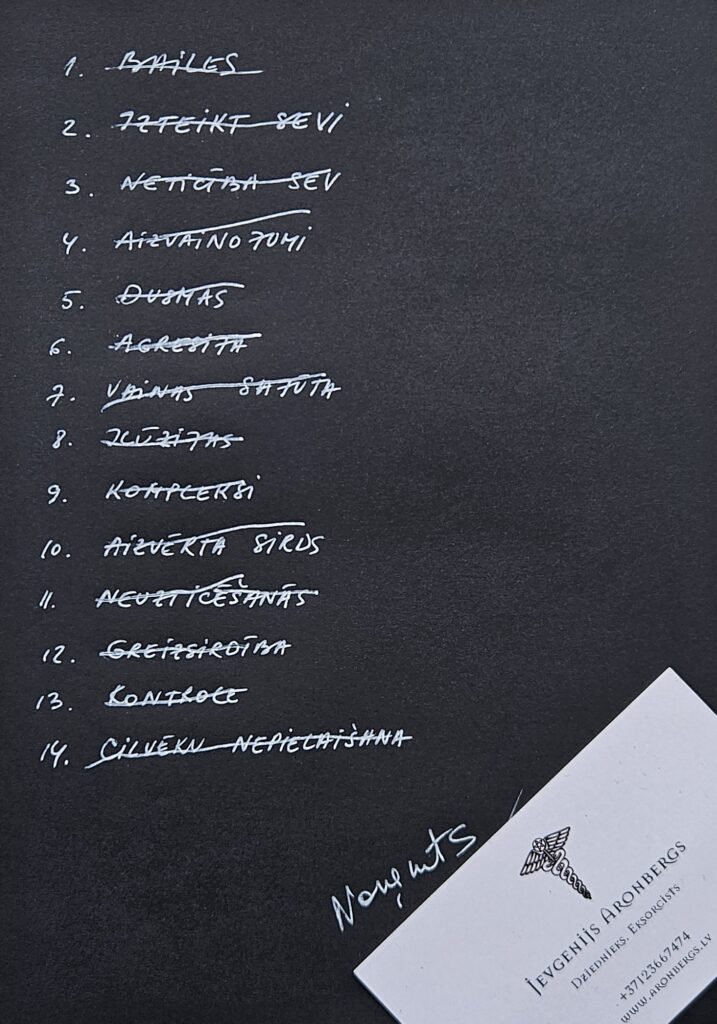 1. BAILES
2. IZTEIKT SEVI
3. NETICĪBA SEV
4. AIZVAINOJUMI
5. DUSMAS
6. AGRESIJA
7. VAINAS SAJŪTA
8. ILŪZIJAS
9. KOMPLEKSI
10. AIZVĒRTA SIRDS
11. NEUZTICĒŠANĀS
12. GREIZSIRDĪBA
13. KONTROLE
14. CILVĒKU NEPIELAIŠANA
Noņemts
JEVGENIJS ARONBERGS
DZIEDNIEKS, EKSORCISTS
+37123667474
WWW.ARONBERGS.LV